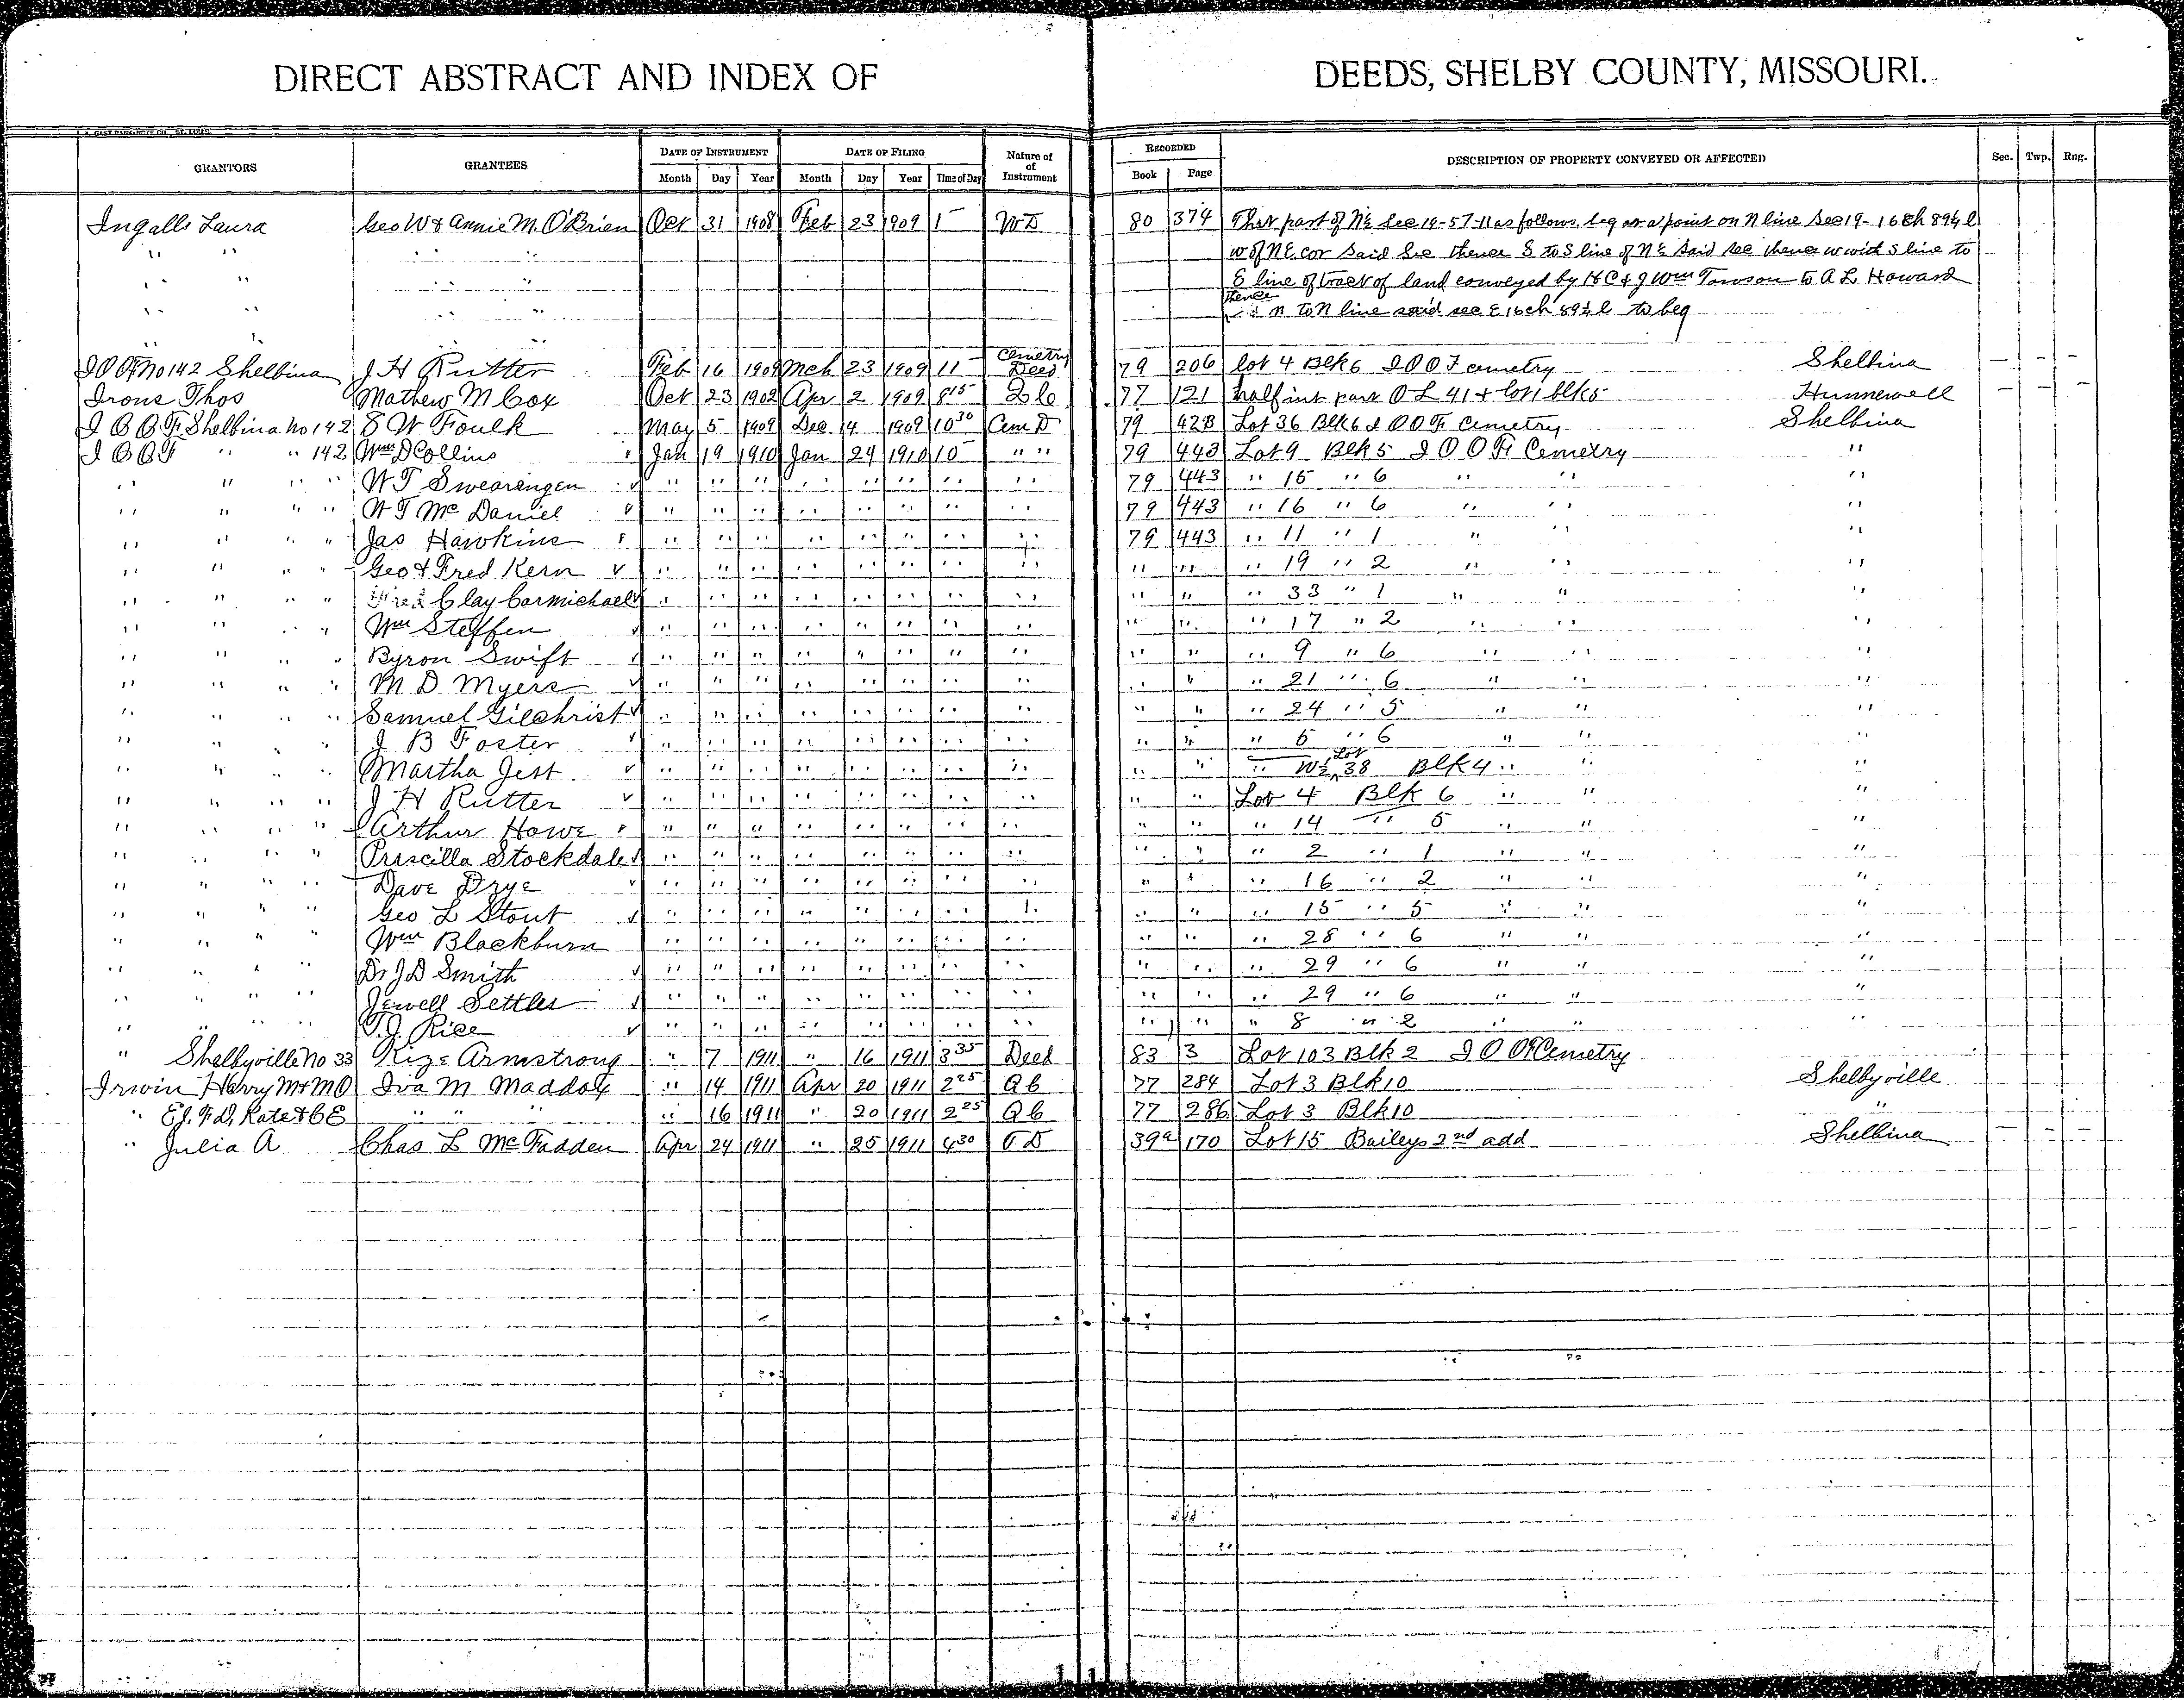 DIRECT ABSTRACT AND INDEX OF DEEDS, SHELBY COUNTY, MISSOURI.
GRANTORS GRANTEES DATE OF INSTRUMENT DATE OF FILING Nature of of Instrument RECORDED DESCRIPTION OF PROPERTY CONVEYED OR AFFECTED Sec. Twp. Rng.
Month Day Year Month Day Year Time of Day Book Page
Ingalls Laura Geo W & Annie M. O'Brien Oct 31 1908 Feb 23 1909 1 – WD 80 374 That part of N½ Sec 19-57-11 as follows. beg at a point on N line Sec 19 - 16 ch 89½ l
" " " " w of NE cor said Sec thence S to S line of N½ said sec thence w with S line to
" " " " E line of tract of land conveyed by H C & J Wm Towson to A L Howard
" " " " thence n to N line said sec E 16 ch 89½ l to beg
" "
I O O F No 142 Shelbina J H Rutter Feb 16 1909 Mch 23 1909 11 – Cemetry Deed 79 206 lot 4 Blk 6 I O O F cemetry Shelbina – – –
Irons Thos Mathew M Cox Oct 23 1902 Apr 2 1909 8 15 Q C 77 121 half int part O L 41 + lot 1 blk 5 Hunnewell – – –
I O O F Shelbina No 142 S W Foulk May 5 1909 Dec 14 1909 10 30 Cem D 79 423 Lot 36 Blk 6 I O O F Cemetry Shelbina
I O O F " " 142 Wm D Collins Jan 19 1910 Jan 24 1910 10 – " " 79 443 Lot 9 Blk 5 I O O F Cemetry "
" " " " W T Swearengen ✓ " " " " " " " " " 79 443 " 15 " 6 " " "
" " " " W T McDaniel ✓ " " " " " " " " " 79 443 " 16 " 6 " " "
" " " " Jas Hawkins ✓ " " " " " " " " " 79 443 " 11 " 1 " " "
" " " " Geo & Fred Kern ✓ " " " " " " " " " " " " 19 " 2 " " "
" " " " Fred Clay Carmichael ✓ " " " " " " " " " " " " 33 " 1 " " "
" " " " Wm Steffen ✓ " " " " " " " " " " " " 17 " 2 " " "
" " " " Byron Swift ✓ " " " " " " " " " " " " 9 " 6 " " "
" " " " M D Myers ✓ " " " " " " " " " " " " 21 " 6 " " "
" " " " Samuel Gilchrist ✓ " " " " " " " " " " " " 24 " 5 " " "
" " " " J B Foster ✓ " " " " " " " " " " " " 5 " 6 " " "
" " " " Martha Jest ✓ " " " " " " " " " " " " W½ Lot 38 Blk 4 " " "
" " " " J H Rutter ✓ " " " " " " " " " " " Lot 4 Blk 6 " " "
" " " " Arthur Howe ✓ " " " " " " " " " " " " 14 " 5 " " "
" " " " Priscilla Stockdale ✓ " " " " " " " " " " " " 2 " 1 " " "
" " " " Dave Drye ✓ " " " " " " " " " " " " 16 " 2 " " "
" " " " Geo L Stout ✓ " " " " " " " " " " " " 15 " 5 " " "
" " " " Wm Blackburn " " " " " " " " " " " " 28 " 6 " " "
" " " " Dr J D Smith ✓ " " " " " " " " " " " " 29 " 6 " " "
" " " " Jewell Settles ✓ " " " " " " " " " " " " 29 " 6 " " "
" " " " T. J. Rice ✓ " " " " " " " " " " " " 8 " 2 " " "
" Shelbyville No 33 Kize Armstrong " 7 1911 " 16 1911 3 35 Deed 83 3 Lot 103 Blk 2 I O O F Cemetry
Irwin Harry M & M O Iva M Maddox " 14 1911 Apr 20 1911 2 25 Q C 77 284 Lot 3 Blk 10 Shelbyville
" E J. F D, Kate & C E " " " " 16 1911 " 20 1911 2 25 Q C 77 286 Lot 3 Blk 10 "
" Julia A Chas L McFadden Apr 24 1911 " 25 1911 4 30 T D 39a 170 Lot 15 Baileys 2nd add Shelbina – – –